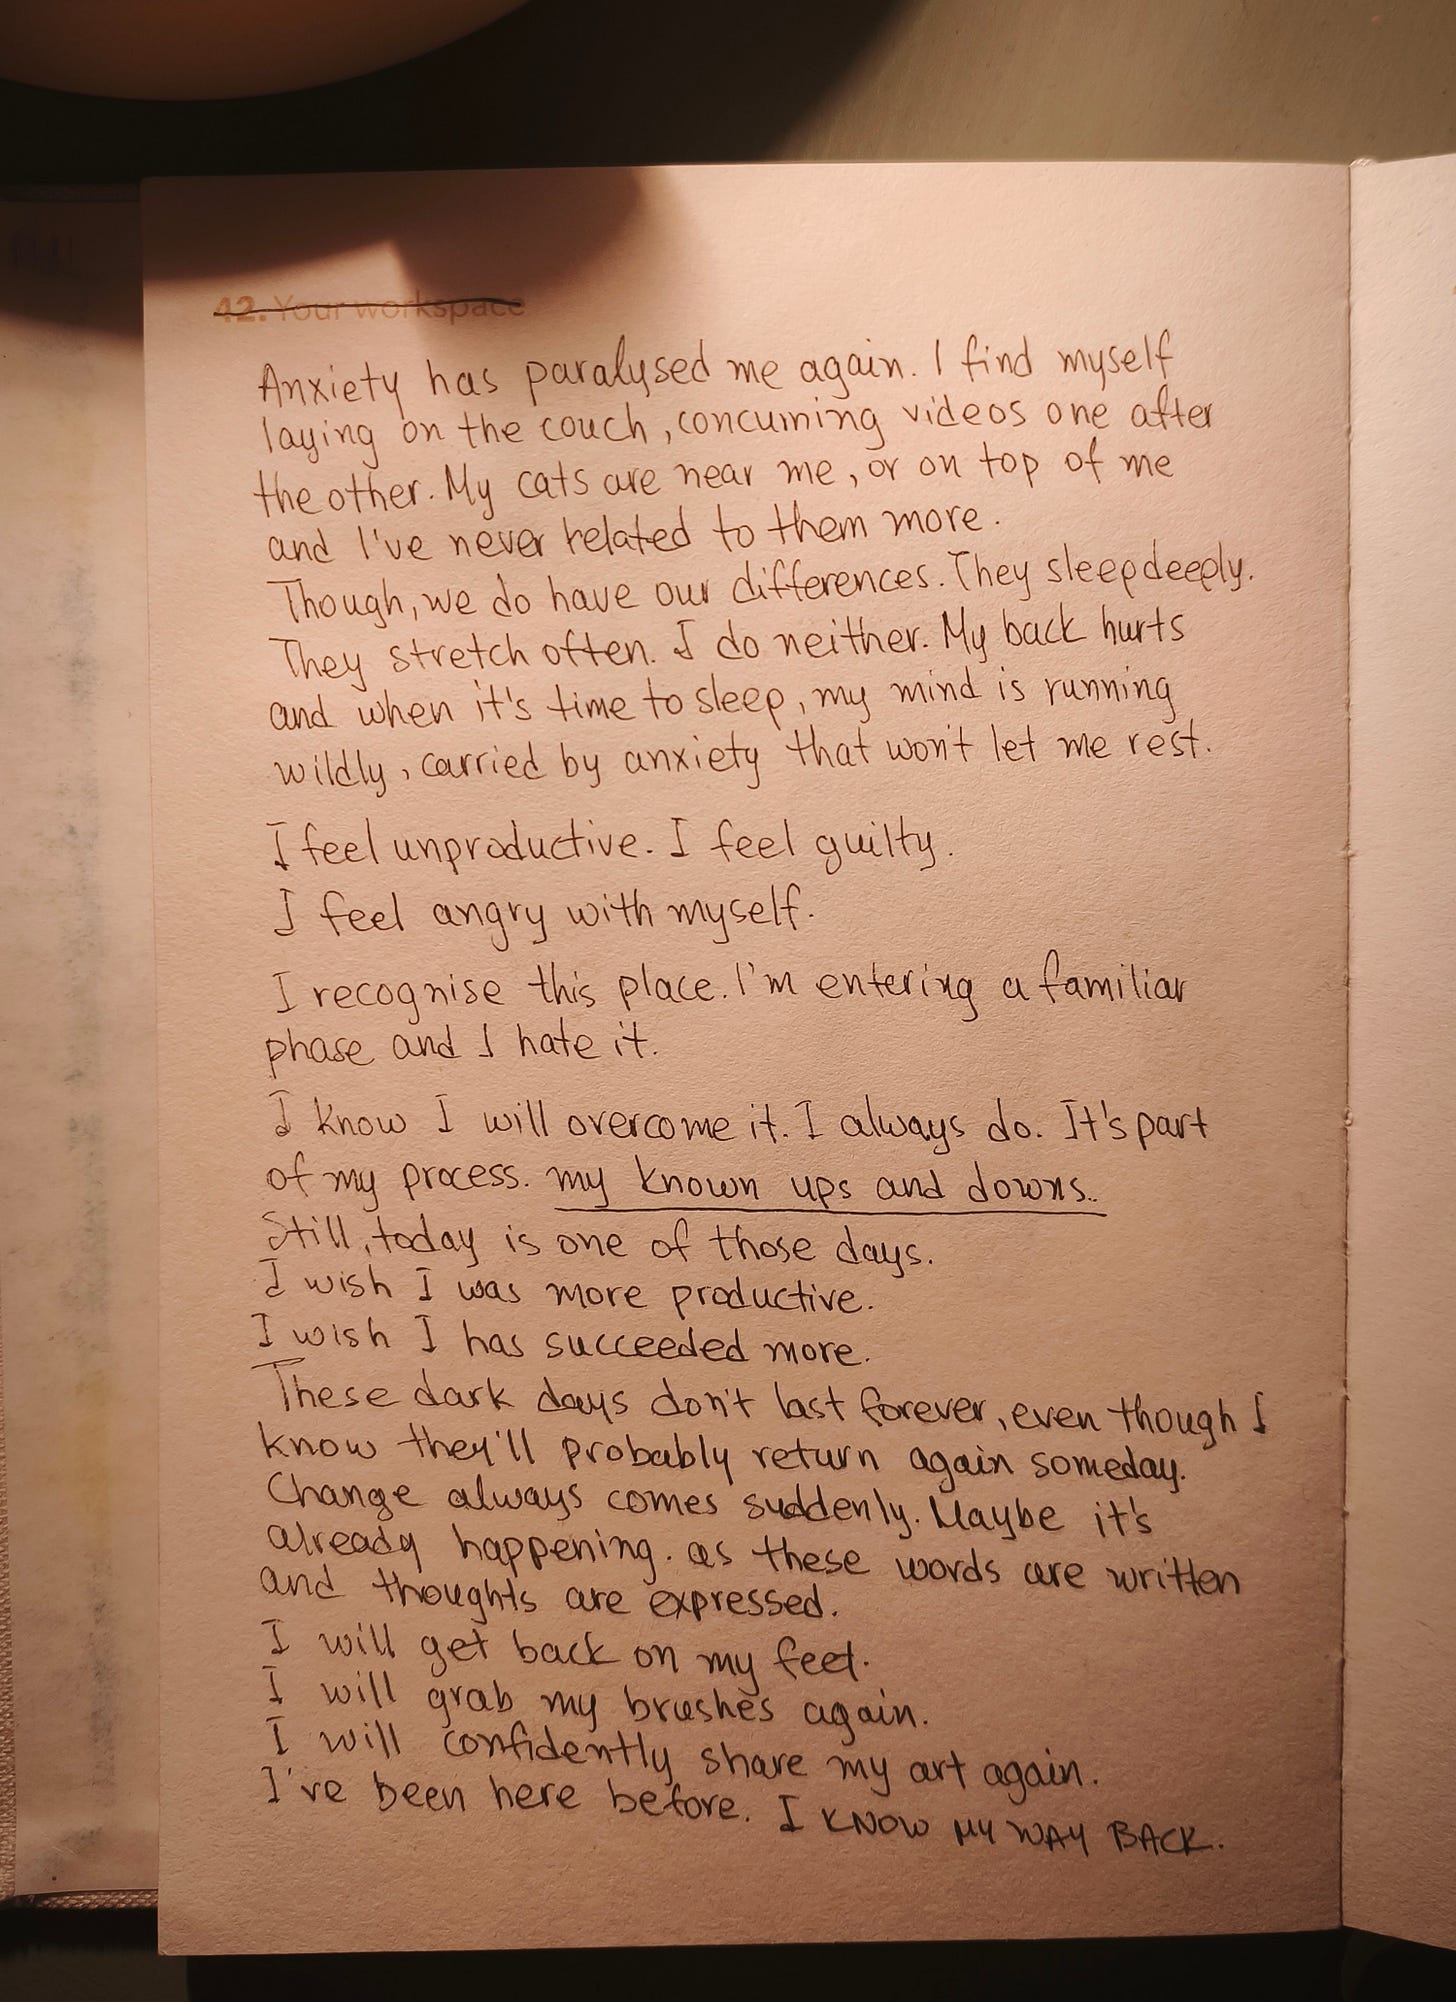 42. Your workspace
Anxiety has paralysed me again. I find myself
laying on the couch, concuming videos one after
the other. My cats are near me, or on top of me
and I've never related to them more.
Though, we do have our differences. They sleep deeply.
They stretch often. I do neither. My back hurts
and when it's time to sleep, my mind is running
wildly, carried by anxiety that won't let me rest.
I feel unproductive. I feel guilty.
I feel angry with myself.
I recognise this place. I'm entering a familiar
phase and I hate it.
I know I will overcome it. I always do. It's part
of my process. my known ups and downs..
Still, today is one of those days.
I wish I was more productive.
I wish I has succeeded more.
These dark days don't last forever, even though I
know they'll probably return again someday.
Change always comes suddenly. Maybe it's
already happening. as these words are written
and thoughts are expressed.
I will get back on my feet.
I will grab my brushes again.
I will confidently share my art again.
I've been here before. I KNOW MY WAY BACK.